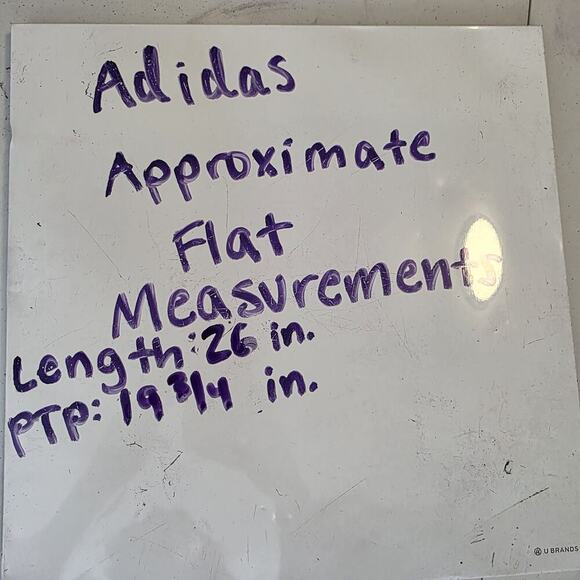 Adidas
Approximate
Flat
Measurements
Length: 26 in.
PTP: 19 3/4 in.
U BRANDS